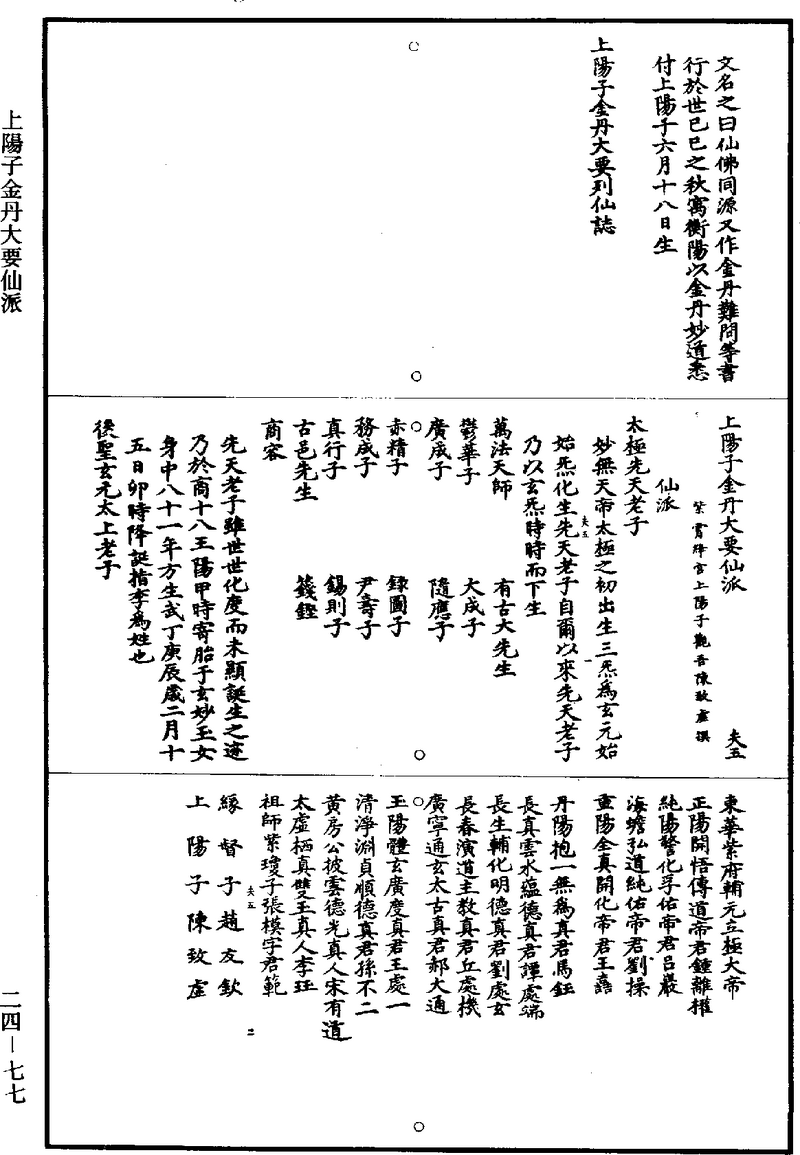 上陽子金丹大要仙派
二四—七七
文名之曰仙佛同源又作金丹難問等書
行於世己巳之秋寓衡陽以金丹妙道悉
付上陽子六月十八日生
上陽子金丹大要列仙誌
上陽子金丹大要仙派 夫五
紫霄絳宮上陽子觀吾陳致虛撰
仙派
太極先天老子
妙無天帝太極之初出生三炁為玄元始
始炁化生先天老子自爾以來先天老子
夫五 一
乃以玄炁時時而下生
萬法天師 有古大先生
鬱華子 大成子
廣成子 隨應子
赤精子 錄圖子
務成子 尹壽子
真行子 錫則子
古邑先生 籛鏗
商容
先天老子雖世世化度而未顯誕生之迹
乃於商十八王陽甲時寄胎于玄妙玉女
身中八十一年方生武丁庚辰歲二月十
五日卯時降誕指李為姓也
後聖玄元太上老子
東華紫府輔元立極大帝
正陽開悟傳道帝君鍾離權
純陽警化孚佑帝君呂巖
海蟾弘道純佑帝君劉操
重陽全真開化帝君王嚞
丹陽抱一無為真君馬鈺
長真雲水蘊德真君譚處端
長生輔化明德真君劉處玄
長春演道主教真君丘處機
廣寧通玄太古真君郝大通
玉陽體玄廣度真君王處一
清淨淵貞順德真君孫不二
黃房公披雲德光真人宋有道
太虛栖真雙玉真人李珏
祖師紫瓊子張模字君範
夫五 二
緣督子趙友欽
上陽子陳致虛